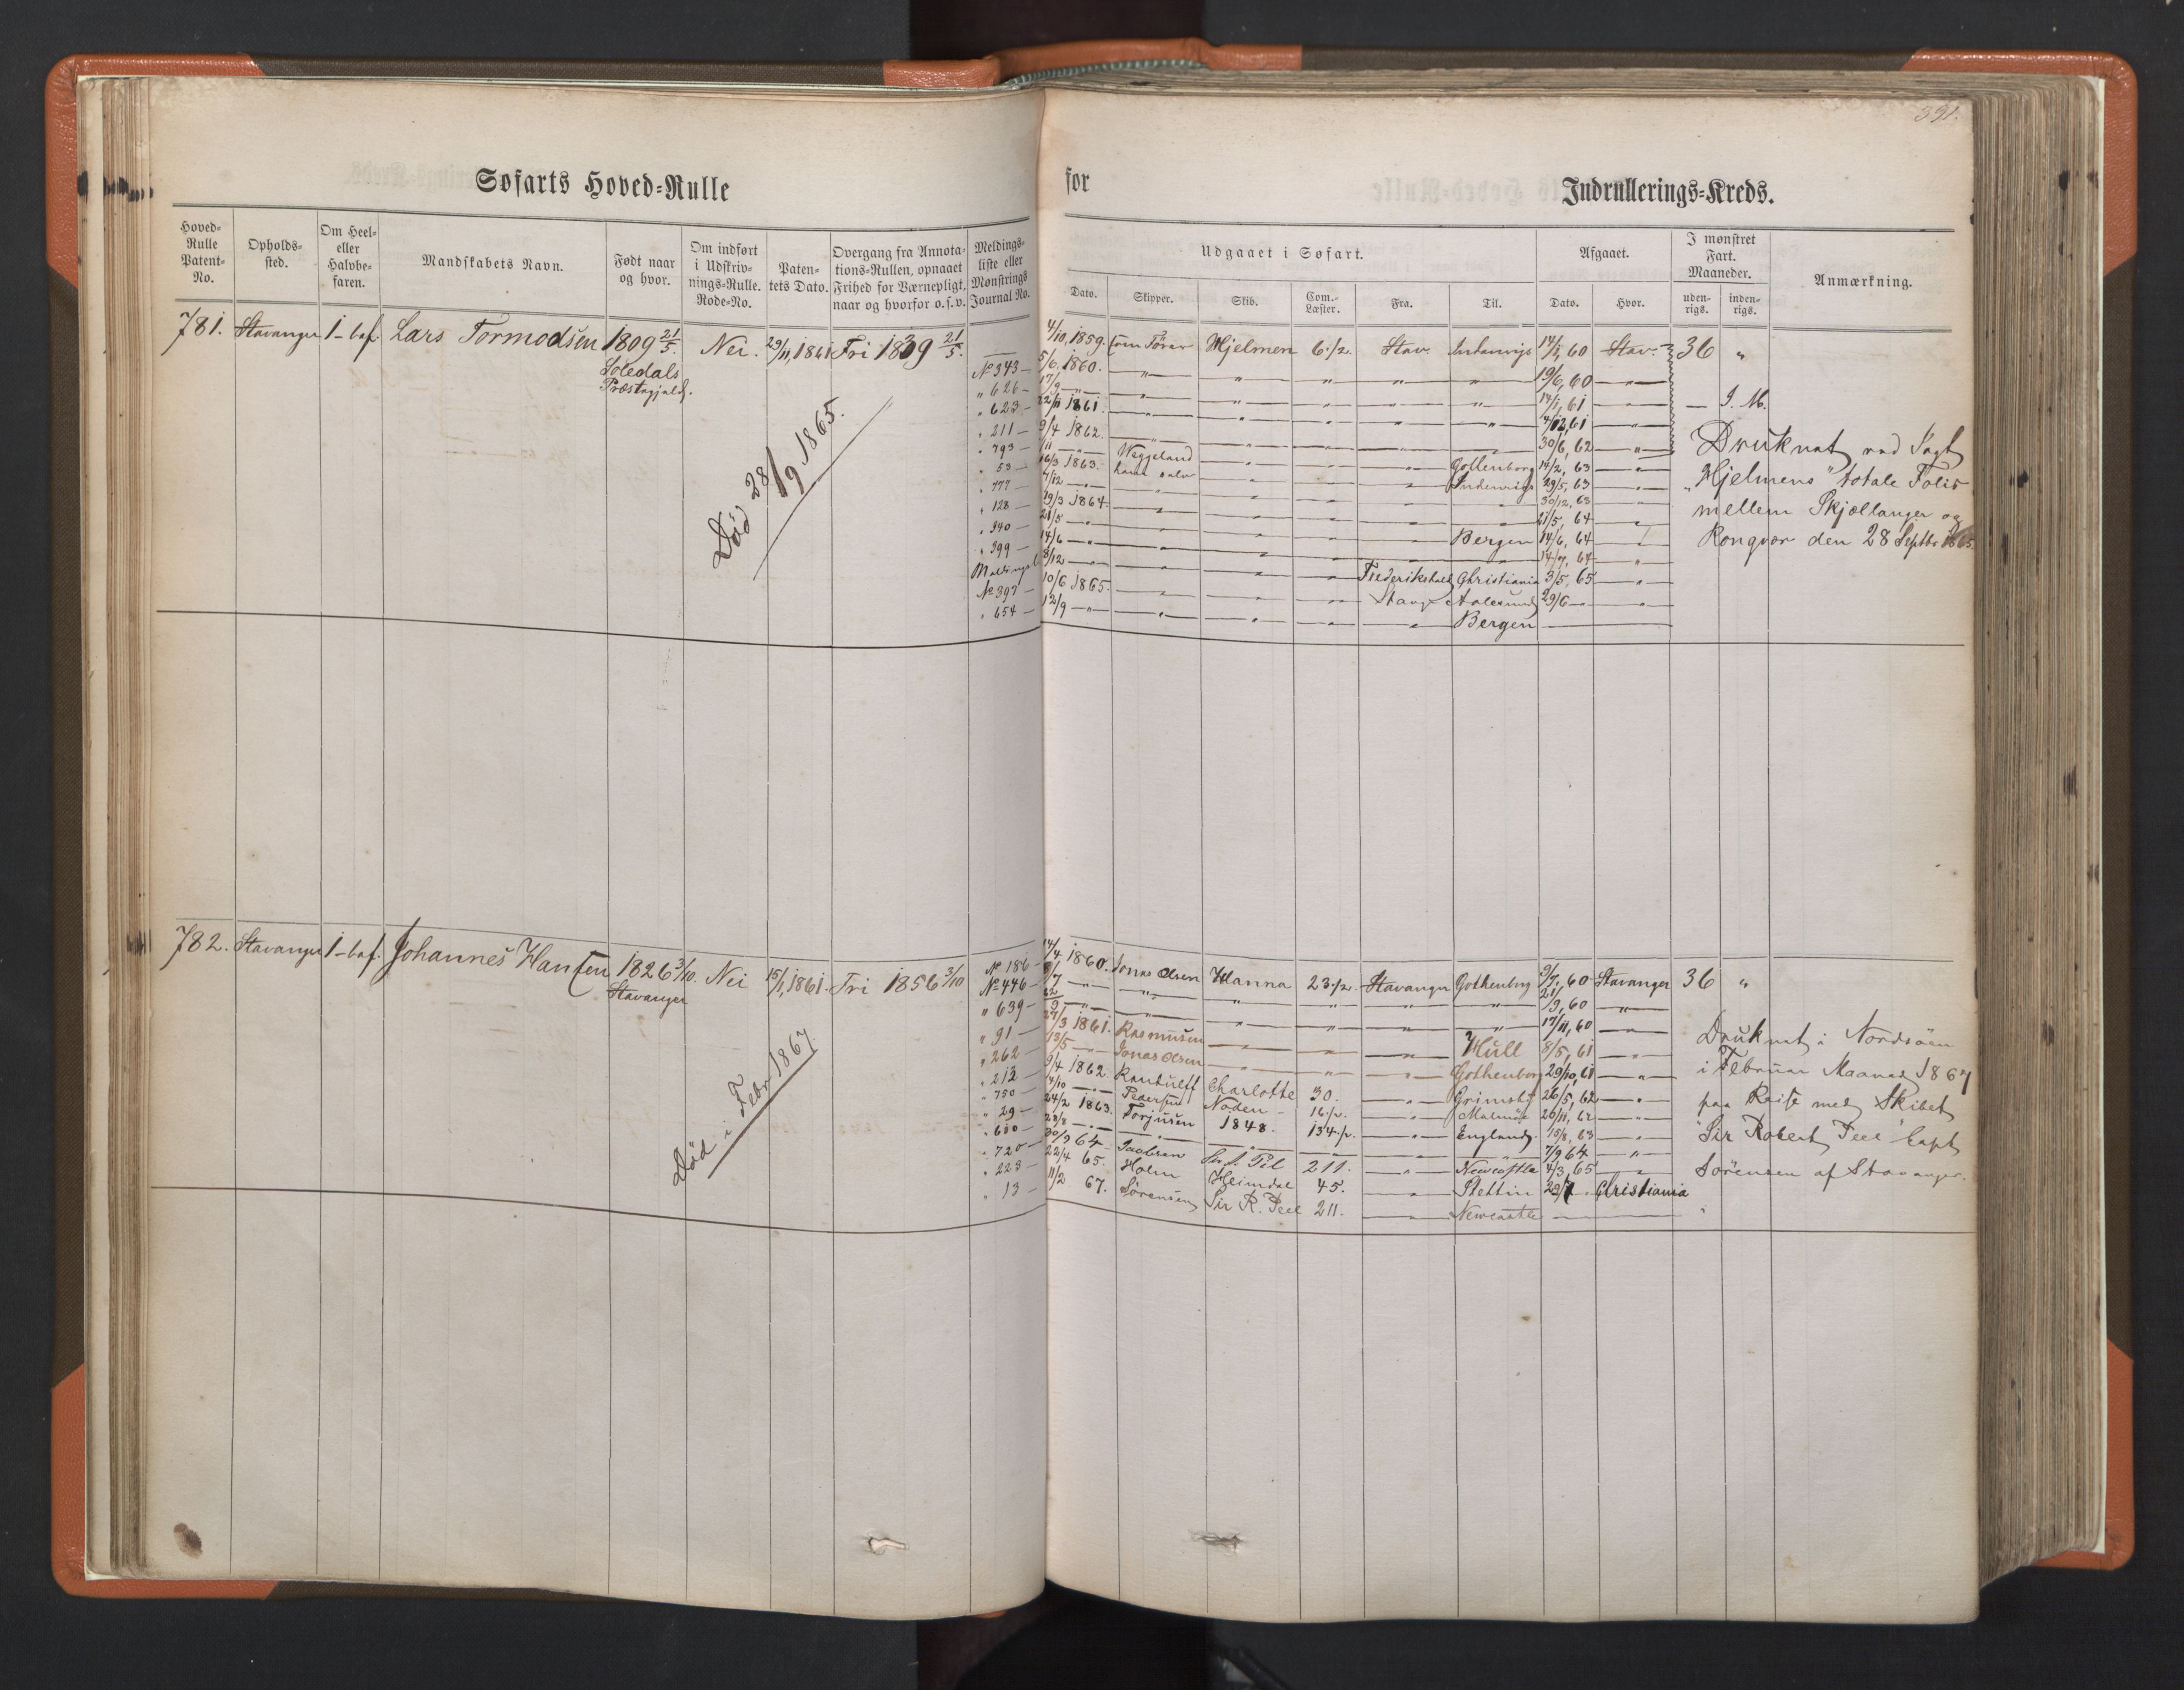 391.
Søfarts Hoved-Rulle for Indrullerings-Kreds.
Hoved-Rulle Patent-No.
Opholds-sted.
Om Heel- eller Halvbe-faren.
Mandskabets Navn.
Født naar og hvor.
Om indført i Udskriv-nings-Rulle. Rode-No.
Paten-tets Dato.
Overgang fra Annota-tions-Rullen, opnaaet Frihed for Værnepligt, naar og hvorfor o.s.v.
Meldings-liste eller Mønstrings Journal No.
Udgaaet i Søfart.
Dato. Skipper. Skib. Com.-Læster. Fra. Til.
Afgaaet.
Dato. Hvor.
I mønstret Fart. Maaneder.
uden-rigs. inden-rigs.
Anmærkning.
781. Stavanger 1-bef. Lars Tormodsen 1809 21/5. Nei. 29/11, 1861 Fri 1839 21/5.
Præstegjeld.
Død 28/9 1865.
— 4/10, 1859. Hjelmen 6 1/2. Stav. Indenrigs 14/1, 60 Stav. 36 "
No 343 — 5/6, 1860. — " — " " " " 19/6, 60 — " —
" 626 — 17/9 — " — 14/1, 61 — " — — I. M.
" 623 — 22/11 1861. 4/12, 61
" 211 — 9/4 1862. 30/6, 62
" 793 — Weggeland Gottenborg 14/2, 63
" 53 — 16/3 1863. Indenrigs 29/5, 63
" 777 — 4/12 — 30/12, 63
" 128 — 29/3 1864. 21/5, 64
" 340 — 21/5 — Bergen 14/6, 64
" 399 — 14/6 — 14/7, 64
8/12 — Frederikshald Christiania 3/5, 65
No 397 — 10/6 1865. Aalesund 29/6 —
" 654 — 12/9 — " — Bergen
Druknet ved Jagt
"Hjelmens" totale Forlis
mellem Skjællanger og
Rongvær den 28 Septbr 1865
782. Stavanger 1-bef. Johannes Hansen 1826 3/10. Nei 15/1, 1861. Fri 1856 3/10
Stavanger
Død i Febr 1867.
No 186 — 14/4 1860. Jonas Olsen Hanna 23 1/2. Stavanger Gothenborg 9/7, 60 Stavanger 36 "
No 446 — 21/9, 60
" 639 — 17/11, 60
" 91 — 27/3 1861. Rasmusen Hull 8/5, 61
" 262 — 13/5 — Jonas Olsen Gothenborg 29/10, 61
" 212 — 9/4 1862 Charlotte 30. Grimsby 26/5, 62
" 750 — 4/10 — Pedersen 16 1/2. 26/11, 62
" 29 — 24/2 1863. Torjusen 1848. 134 1/2. England. 15/8, 63
" 600 — 28/8 — 7/9 64
" 720 — 30/9 64. Jacobsen 211. Newcastle 4/3, 65
" 223 — 22/4 65. Holm Heimdal 45. Stettin 29/7 Christiania
" 13 — 11/2 67. Sørensen Sir R. Peel 211. Newcastle
Druknet i Nordsøen
i Februar Maaned 1867
paa Reise med Skibet
"Sir Robert Peel" Capt
Sørensen af Stavanger.